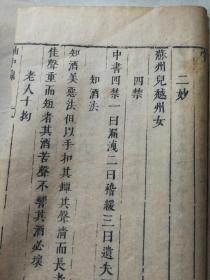 二妙
蘇州兒越州女
四禁
中書四禁一曰漏洩二曰稽緩三曰遺失
知酒法
知酒美惡法但以手扣其罈其聲清而長者
佳聲重而短者其酒苦聲不響其酒必壞
老人十拗